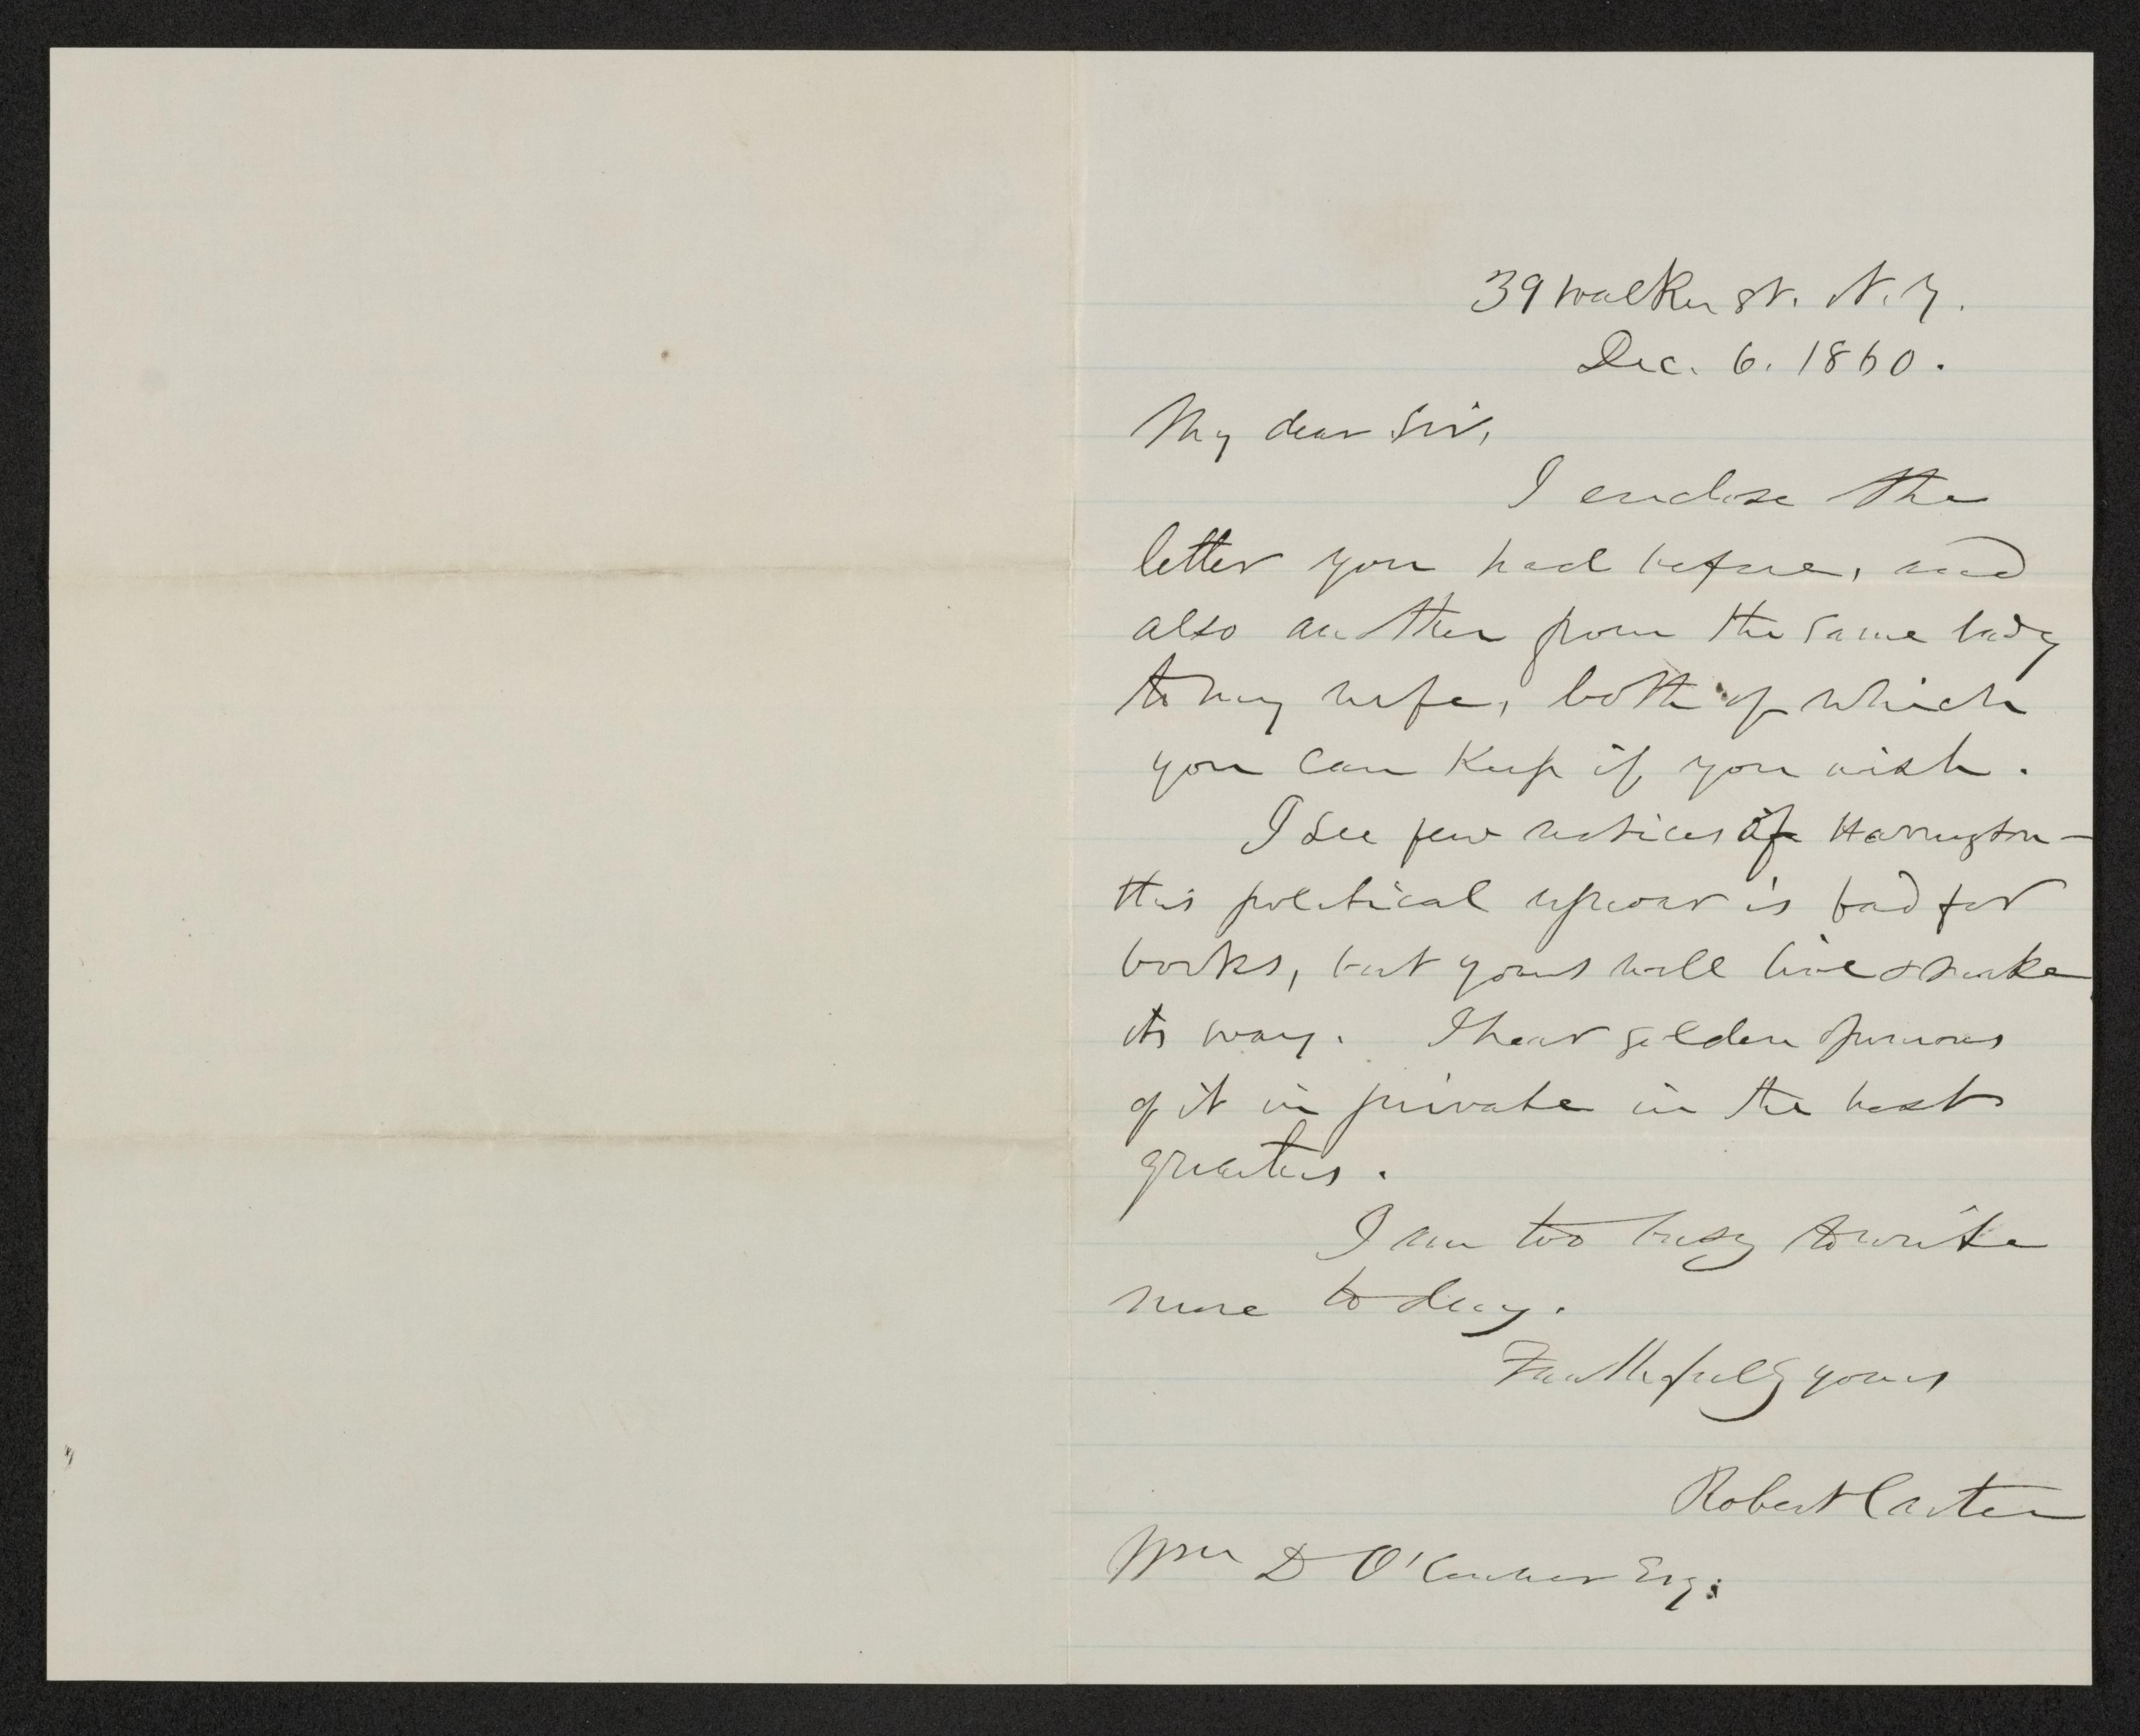 39 Walker St. N.Y.
Dec. 6. 1860.
My dear Sir,
I enclose the
letter you had before, and
also another from the same lady
to my wife, both of which
you can keep if you wish.
I see few notices of Harrington—
this political uproar is bad for
books, but yours will live & make
its way. I hear golden opinions
of it in private in the best
quarters.
I am too busy to write
more to day.
Faithfully yours
Robert Carter
Wm D O'Connor Esq: